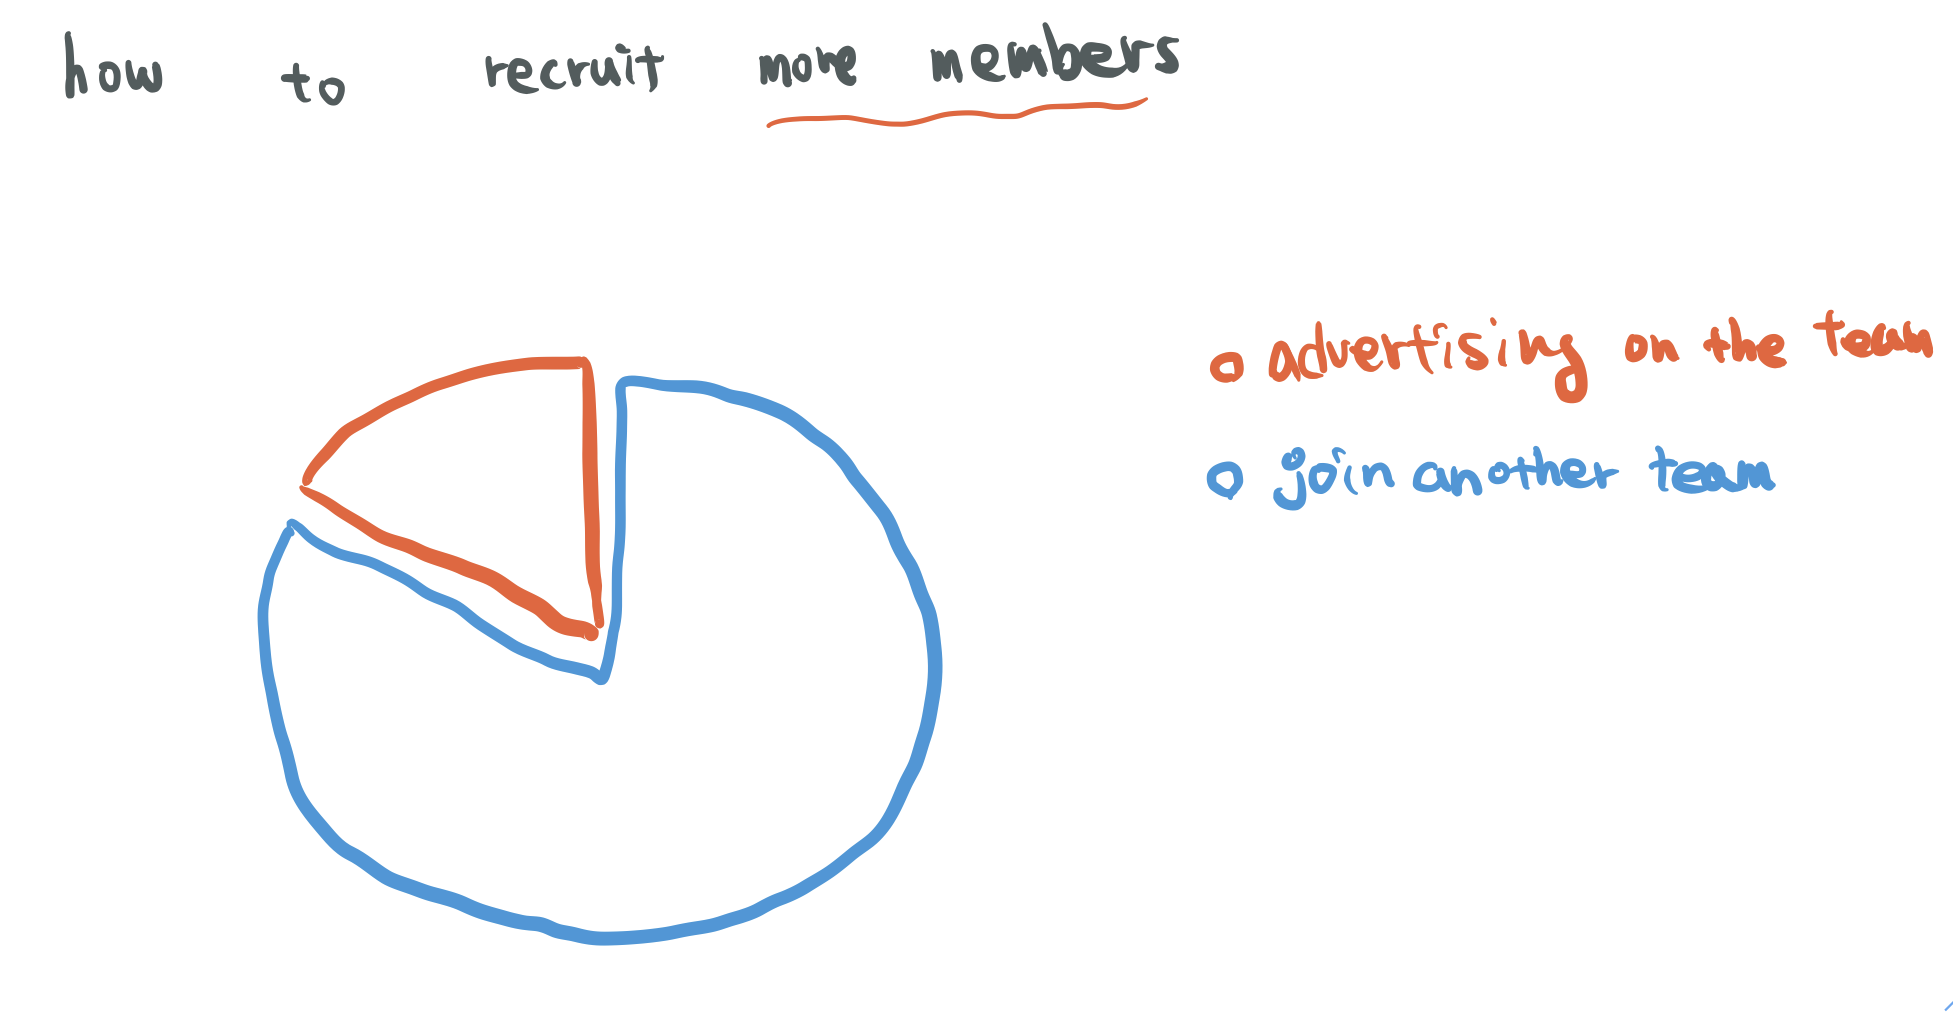 how to recruit more members
advertising on the team
join another team